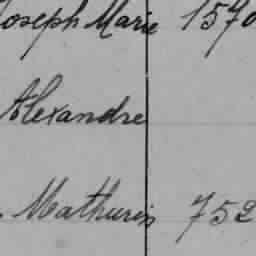 Joseph Marie 1570
Alexandre
Mathurin 752